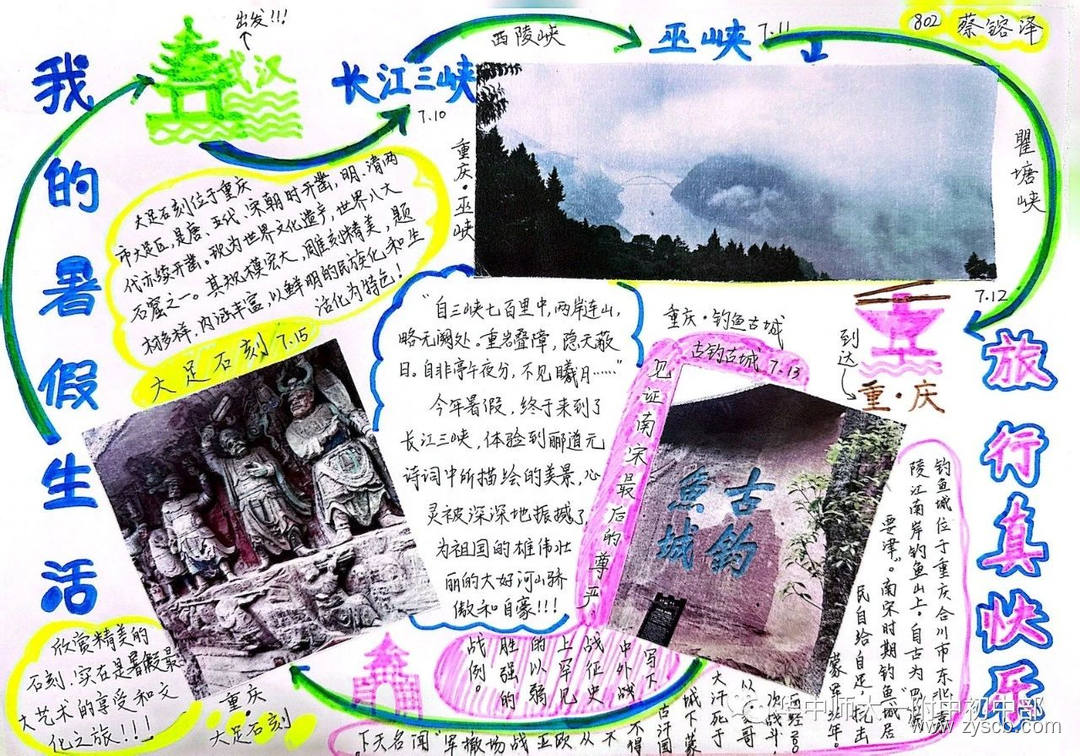 我的暑假生活
旅行真快乐
出发!!!
武汉
长江三峡
7.10
西陵峡
巫峡 7.11
802 蔡镕泽
重庆·巫峡
瞿塘峡
7.12
到达
重·庆
大足石刻位于重庆
市大足区,是唐、五代、宋朝时开凿,明、清两
代亦续开凿。现为世界文化遗产,世界八大
石窟之一。其规模宏大,雕刻精美,题
材多样,内涵丰富,以鲜明的民族化和生
活化为特色!
大足石刻 7.15
“自三峡七百里中,两岸连山,
略无阙处。重岩叠障,隐天蔽
日。自非亭午夜分,不见曦月……”
今年暑假,终于来到了
长江三峡,体验到郦道元
诗词中所描绘的美景,心
灵被深深地振撼了,
为祖国的雄伟壮
丽的大好河山骄
傲和自豪!!!
重庆·钓鱼古城
古钓古城 7.13
见证南宋最后的尊严
古钓
鱼城
钓鱼城位于重庆合川市东北嘉
陵江南岸钓鱼山上。自古为
要津”。南宋时期钓鱼城居
民自给自足,抗击
中外战
战征史
上罕见
的以弱
胜强的
战例。
大汗死于
城下
欣赏精美的
石刻,实在是暑假最
大艺术的享受和文
化之旅!!!
重庆·
大足石刻
华中师大一附中初中部
www.zyscb.com